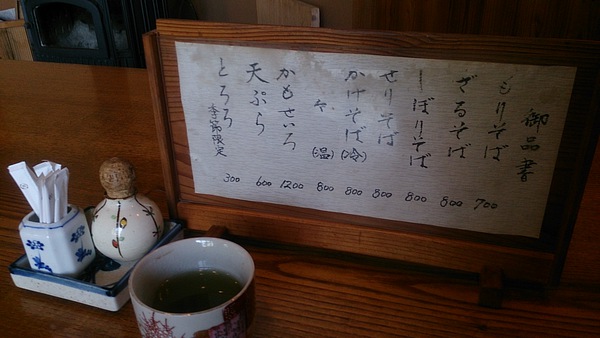 御品書
もりそば 700
ざるそば 800
しぼりそば 800
せりそば 800
かけそば(冷) 800
々 (温) 800
かもせいろ 1200
天ぷら 600
とろろ 季節限定 300